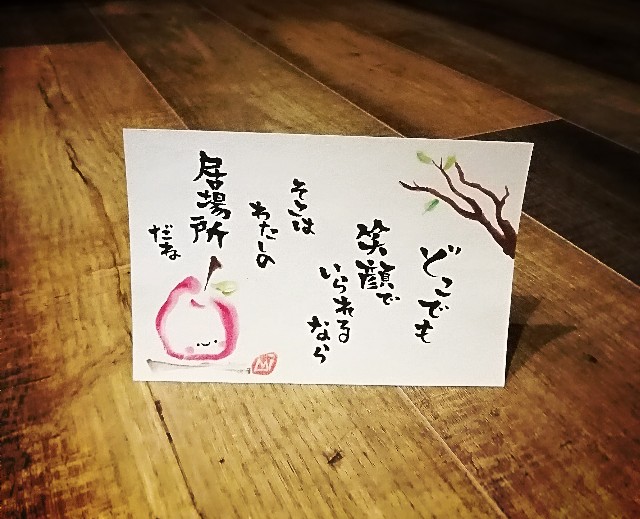 どこでも
笑顔で
いられる
なら
そこは
わたしの
居場所
だね